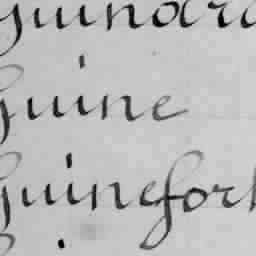 Guindra
Guine
Guinefort